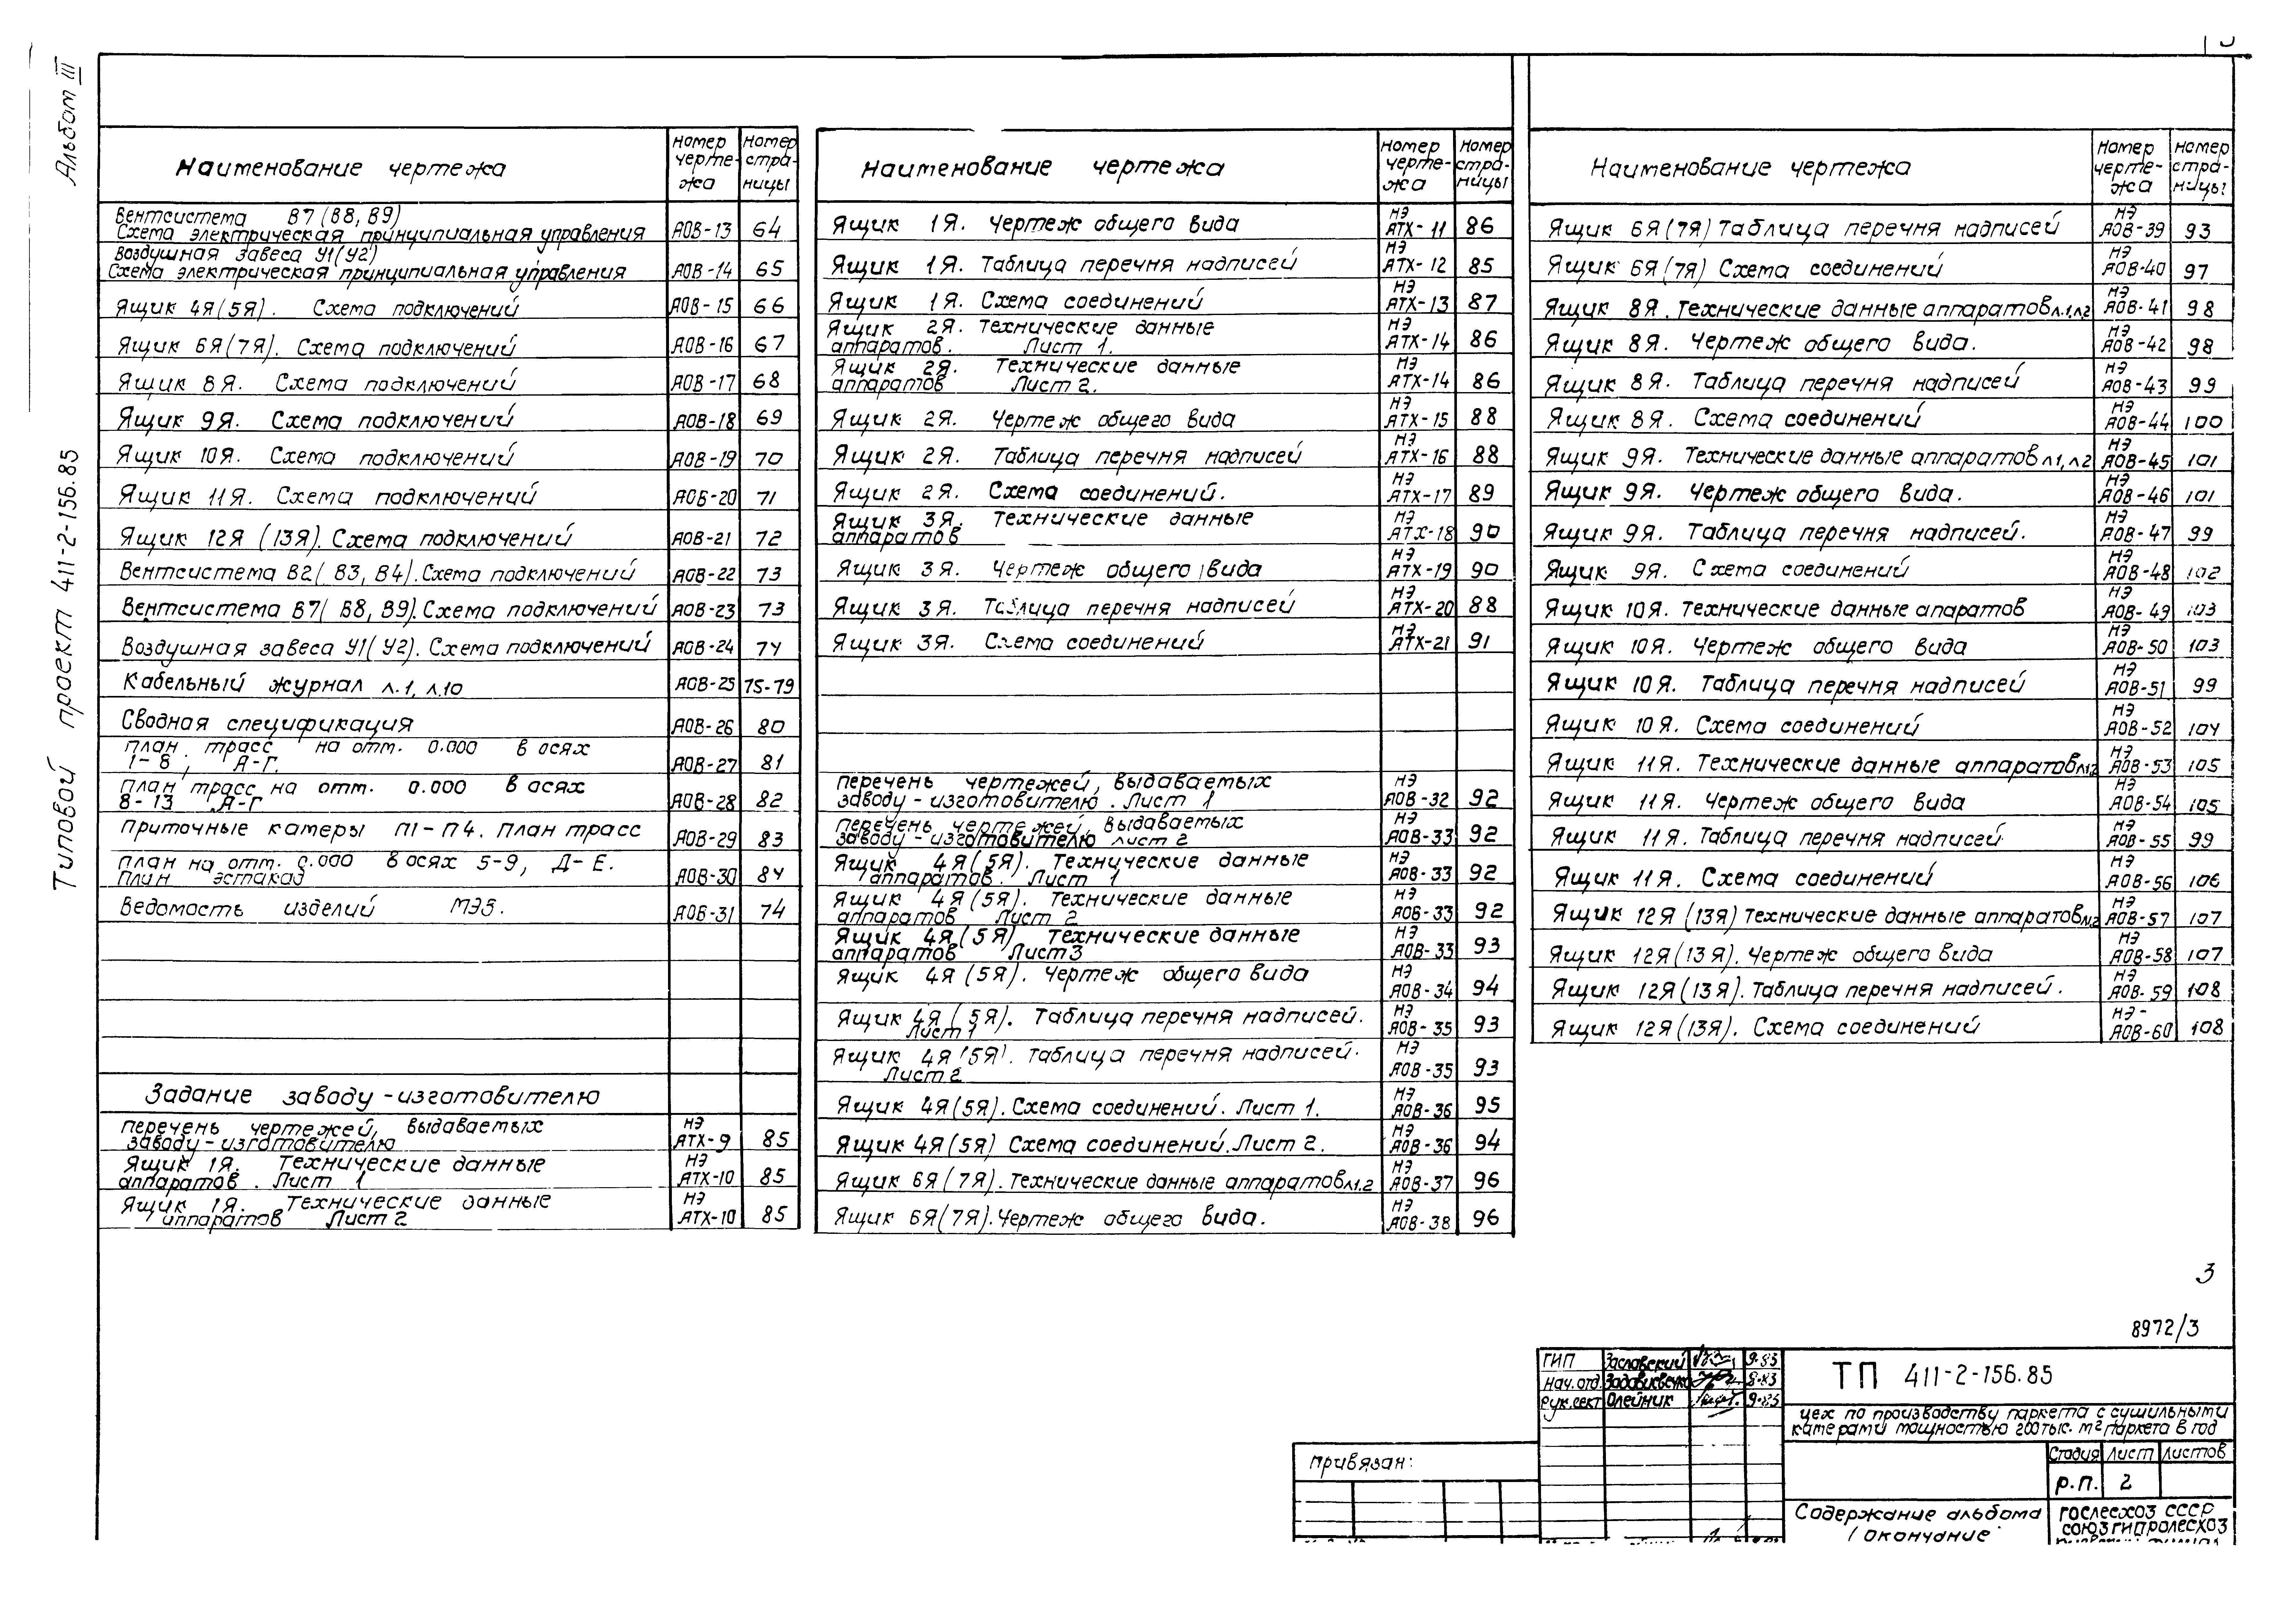 Альбом III
Типовой проект 411-2-156.85
Наименование чертежа
Номер черте-жа
Номер стра-ницы
Вентсистема В7 (В8, В9)
Схема электрическая принципиальная управления АОВ-13 64
Воздушная завеса У1(У2)
Схема электрическая принципиальная управления АОВ-14 65
Ящик 4Я(5Я). Схема подключений АОВ-15 66
Ящик 6Я(7Я). Схема подключений АОВ-16 67
Ящик 8Я. Схема подключений АОВ-17 68
Ящик 9Я. Схема подключений АОВ-18 69
Ящик 10Я. Схема подключений АОВ-19 70
Ящик 11Я. Схема подключений АОВ-20 71
Ящик 12Я (13Я). Схема подключений АОВ-21 72
Вентсистема В2( В3, В4). Схема подключений АОВ-22 73
Вентсистема В7( В8, В9). Схема подключений АОВ-23 73
Воздушная завеса У1( У2). Схема подключений АОВ-24 74
Кабельный журнал л.1, л.10 АОВ-25 75-79
Сводная спецификация АОВ-26 80
План трасс на отм. 0.000 в осях
1-8, А-Г. АОВ-27 81
План трасс на отм. 0.000 в осях
8-13 А-Г АОВ-28 82
Приточные камеры П1-П4. План трасс АОВ-29 83
План на отм. 0.000 в осях 5-9, Д-Е.
План эстакад АОВ-30 84
Ведомость изделий МЭЗ. АОВ-31 74
Задание заводу-изготовителю
Перечень чертежей, выдаваемых
заводу-изготовителю НЭ АТХ-9 85
Ящик 1Я. Технические данные
аппаратов. Лист 1 НЭ АТХ-10 85
Ящик 1Я. Технические данные
аппаратов Лист 2 НЭ АТХ-10 85
Наименование чертежа
Номер черте-жа
Номер стра-ницы
Ящик 1Я. Чертеж общего вида НЭ АТХ-11 86
Ящик 1Я. Таблица перечня надписей НЭ АТХ-12 85
Ящик 1Я. Схема соединений НЭ АТХ-13 87
Ящик 2Я. Технические данные
аппаратов. Лист 1. НЭ АТХ-14 86
Ящик 2Я. Технические данные
аппаратов Лист 2. НЭ АТХ-14 86
Ящик 2Я. Чертеж общего вида НЭ АТХ-15 88
Ящик 2Я. Таблица перечня надписей НЭ АТХ-16 88
Ящик 2Я. Схема соединений. НЭ АТХ-17 89
Ящик 3Я. Технические данные
аппаратов НЭ АТХ-18 90
Ящик 3Я. Чертеж общего вида НЭ АТХ-19 90
Ящик 3Я. Таблица перечня надписей НЭ АТХ-20 88
Ящик 3Я. Схема соединений НЭ АТХ-21 91
Перечень чертежей, выдаваемых
заводу-изготовителю. Лист 1 НЭ АОВ-32 92
Перечень чертежей, выдаваемых
заводу-изготовителю Лист 2 НЭ АОВ-33 92
Ящик 4Я(5Я). Технические данные
аппаратов. Лист 1 НЭ АОВ-33 92
Ящик 4Я(5Я). Технические данные
аппаратов Лист 2 НЭ АОВ-33 92
Ящик 4Я(5Я) Технические данные
аппаратов Лист 3 НЭ АОВ-33 93
Ящик 4Я (5Я). Чертеж общего вида НЭ АОВ-34 94
Ящик 4Я ( 5Я). Таблица перечня надписей.
Лист 1 НЭ АОВ-35 93
Ящик 4Я(5Я). Таблица перечня надписей.
Лист 2 НЭ АОВ-35 93
Ящик 4Я(5Я). Схема соединений. Лист 1. НЭ АОВ-36 95
Ящик 4Я(5Я) Схема соединений. Лист 2. НЭ АОВ-36 94
Ящик 6Я(7Я). Технические данные аппаратов л1.2 НЭ АОВ-37 96
Ящик 6Я(7Я). Чертеж общего вида. НЭ АОВ-38 96
Наименование чертежа
Номер черте-жа
Номер стра-ницы
Ящик 6Я(7Я) Таблица перечня надписей НЭ АОВ-39 93
Ящик 6Я(7Я) Схема соединений НЭ АОВ-40 97
Ящик 8Я. Технические данные аппаратов л.1,л2 НЭ АОВ-41 98
Ящик 8Я. Чертеж общего вида. НЭ АОВ-42 98
Ящик 8Я. Таблица перечня надписей НЭ АОВ-43 99
Ящик 8Я. Схема соединений НЭ АОВ-44 100
Ящик 9Я. Технические данные аппаратов л1, л2 НЭ АОВ-45 101
Ящик 9Я. Чертеж общего вида. НЭ АОВ-46 101
Ящик 9Я. Таблица перечня надписей. НЭ АОВ-47 99
Ящик 9Я. Схема соединений НЭ АОВ-48 102
Ящик 10Я. Технические данные апаратов НЭ АОВ-49 103
Ящик 10Я. Чертеж общего вида НЭ АОВ-50 103
Ящик 10Я. Таблица перечня надписей НЭ АОВ-51 99
Ящик 10Я. Схема соединений НЭ АОВ-52 104
Ящик 11Я. Технические данные аппаратов НЭ АОВ-53 105
Ящик 11Я. Чертеж общего вида НЭ АОВ-54 105
Ящик 11Я. Таблица перечня надписей НЭ АОВ-55 99
Ящик 11Я. Схема соединений НЭ АОВ-56 106
Ящик 12Я (13Я) Технические данные аппаратов НЭ АОВ-57 107
Ящик 12Я(13Я). Чертеж общего вида НЭ АОВ-58 107
Ящик 12Я(13Я). Таблица перечня надписей. НЭ АОВ-59 108
Ящик 12Я(13Я). Схема соединений НЭ- АОВ-60 108
3
8972/3
ГИП Заславский 9.85
Нач. отд.
Рук. сект Олейник 9.85
ТП 411-2-156.85
Цех по производству паркета с сушильными
камерами мощностью 200тыс. м² паркета в год
Привязан:
Стадия Лист Листов
Р.П. 2
Содержание альбома
(окончание
Гослесхоз СССР
Союзгипролесхоз